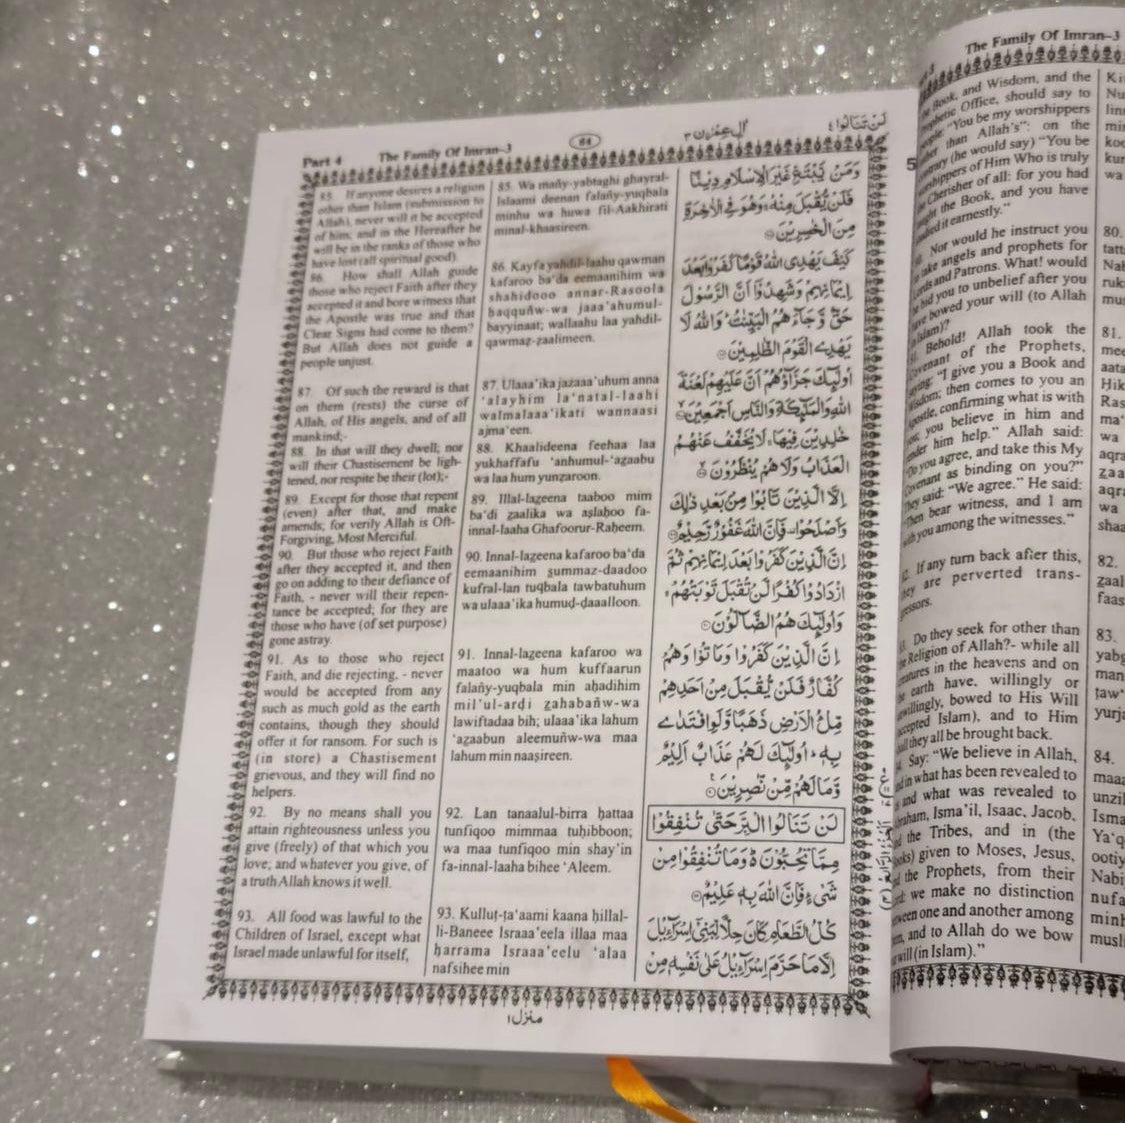 Part 4
The Family Of Imran–3
84
اٰل عِمْرٰن ٣
لَنْ تَنَالُوا ٤
85. If anyone desires a religion
other than Islam (submission to
Allah), never will it be accepted
of him; and in the Hereafter he
will be in the ranks of those who
have lost (all spiritual good).
86. How shall Allah guide
those who reject Faith after they
accepted it and bore witness that
the Apostle was true and that
Clear Signs had come to them?
But Allah does not guide a
people unjust.
87. Of such the reward is that
on them (rests) the curse of
Allah, of His angels, and of all
mankind;-
88. In that will they dwell; nor
will their Chastisement be ligh-
tened, nor respite be their (lot);-
89. Except for those that repent
(even) after that, and make
amends; for verily Allah is Oft-
Forgiving, Most Merciful.
90. But those who reject Faith
after they accepted it, and then
go on adding to their defiance of
Faith, - never will their repen-
tance be accepted; for they are
those who have (of set purpose)
gone astray.
91. As to those who reject
Faith, and die rejecting, - never
would be accepted from any
such as much gold as the earth
contains, though they should
offer it for ransom. For such is
(in store) a Chastisement
grievous, and they will find no
helpers.
92. By no means shall you
attain righteousness unless you
give (freely) of that which you
love; and whatever you give, of
a truth Allah knows it well.
93. All food was lawful to the
Children of Israel, except what
Israel made unlawful for itself,
85. Wa mañy-yabtaghi ghayral-
Islaami deenan falañy-yuqbala
minhu wa huwa fil-Aakhirati
minal-khaasireen.
86. Kayfa yahdil-laahu qawman
kafaroo ba'da eemaanihim wa
shahidooo annar-Rasoola
ḥaqquñw-wa jaaa'ahumul-
bayyinaat; wallaahu laa yahdil-
qawmaẓ-ẓaalimeen.
87. Ulaaa'ika jazaaa'uhum anna
'alayhim la'natal-laahi
walmalaaa'ikati wannaasi
ajma'een.
88. Khaalideena feehaa laa
yukhaffafu 'anhumul-'aẕaabu
wa laa hum yunẓaroon.
89. Illal-lazeena taaboo mim
ba'di zaalika wa aṣlaḥoo fa-
innal-laaha Ghafoorur-Raḥeem.
90. Innal-lazeena kafaroo ba'da
eemaanihim summaz-daadoo
kufral-lan tuqbala tawbatuhum
wa ulaaa'ika humuḍ-ḍaaalloon.
91. Innal-lazeena kafaroo wa
maatoo wa hum kuffaarun
falañy-yuqbala min aḥadihim
mil'ul-arḍi ẕahabañw-wa
lawiftadaa bih; ulaaa'ika lahum
'aẕaabun aleemuñw-wa maa
lahum min naaṣireen.
92. Lan tanaalul-birra ḥattaa
tunfiqoo mimmaa tuḥibboon;
wa maa tunfiqoo min shay'in
fa-innal-laaha bihee 'Aleem.
93. Kulluṭ-ṭa'aami kaana ḥillal-
li-Baneee Israaa'eela illaa maa
ḥarrama Israaa'eelu 'alaa
nafsihee min
وَمَنْ يَّبْتَغِ غَيْرَ الْاِسْلَامِ دِيْنًا
فَلَنْ يُّقْبَلَ مِنْهُ ۚ وَهُوَ فِى الْاٰخِرَةِ
مِنَ الْخٰسِرِيْنَ
كَيْفَ يَهْدِى اللّٰهُ قَوْمًا كَفَرُوْا بَعْدَ
اِيْمَانِهِمْ وَشَهِدُوْٓا اَنَّ الرَّسُوْلَ
حَقٌّ وَّجَآءَهُمُ الْبَيِّنٰتُ ؕ وَاللّٰهُ لَا
يَهْدِى الْقَوْمَ الظّٰلِمِيْنَ
اُولٰٓئِكَ جَزَآؤُهُمْ اَنَّ عَلَيْهِمْ لَعْنَةَ
اللّٰهِ وَالْمَلٰٓئِكَةِ وَالنَّاسِ اَجْمَعِيْنَ
خٰلِدِيْنَ فِيْهَا ۚ لَا يُخَفَّفُ عَنْهُمُ
الْعَذَابُ وَلَا هُمْ يُنْظَرُوْنَ
اِلَّا الَّذِيْنَ تَابُوْا مِنْۢ بَعْدِ ذٰلِكَ
وَاَصْلَحُوْا ۟ فَاِنَّ اللّٰهَ غَفُوْرٌ رَّحِيْمٌ
اِنَّ الَّذِيْنَ كَفَرُوْا بَعْدَ اِيْمَانِهِمْ ثُمَّ
ازْدَادُوْا كُفْرًا لَّنْ تُقْبَلَ تَوْبَتُهُمْ ۚ
وَاُولٰٓئِكَ هُمُ الضَّآلُّوْنَ
اِنَّ الَّذِيْنَ كَفَرُوْا وَمَاتُوْا وَهُمْ
كُفَّارٌ فَلَنْ يُّقْبَلَ مِنْ اَحَدِهِمْ
مِّلْءُ الْاَرْضِ ذَهَبًا وَّلَوِ افْتَدٰى
بِهٖ ؕ اُولٰٓئِكَ لَهُمْ عَذَابٌ اَلِيْمٌ
وَّمَا لَهُمْ مِّنْ نّٰصِرِيْنَ
لَنْ تَنَالُوا الْبِرَّ حَتّٰى تُنْفِقُوْا
مِمَّا تُحِبُّوْنَ ؕ وَمَا تُنْفِقُوْا مِنْ
شَىْءٍ فَاِنَّ اللّٰهَ بِهٖ عَلِيْمٌ
كُلُّ الطَّعَامِ كَانَ حِلًّا لِّبَنِىْٓ اِسْرَآءِيْلَ
اِلَّا مَا حَرَّمَ اِسْرَآءِيْلُ عَلٰى نَفْسِهٖ مِنْ
منزل ١
The Family Of Imran–3
Book, and Wisdom, and the
Prophetic Office, should say to
"You be my worshippers
than Allah's": on the
(he would say) "You be
of Him Who is truly
Cherisher of all: for you had
the Book, and you have
it earnestly."
Nor would he instruct you
take angels and prophets for
Lords and Patrons. What! would
bid you to unbelief after you
bowed your will (to Allah
Islam)?
Behold! Allah took the
Covenant of the Prophets,
"I give you a Book and
Wisdom; then comes to you an
Apostle, confirming what is with
you believe in him and
him help." Allah said:
"Do you agree, and take this My
Covenant as binding on you?"
They said: "We agree." He said:
"Then bear witness, and I am
with you among the witnesses."
If any turn back after this,
they are perverted trans-
gressors.
Do they seek for other than
Religion of Allah?- while all
in the heavens and on
earth have, willingly or
bowed to His Will
(accepted Islam), and to Him
shall they all be brought back.
Say: "We believe in Allah,
in what has been revealed to
and what was revealed to
Isma'il, Isaac, Jacob,
the Tribes, and in (the
Books) given to Moses, Jesus,
the Prophets, from their
we make no distinction
between one and another among
and to Allah do we bow
will (in Islam)."
80.
81.
82.
83.
84.